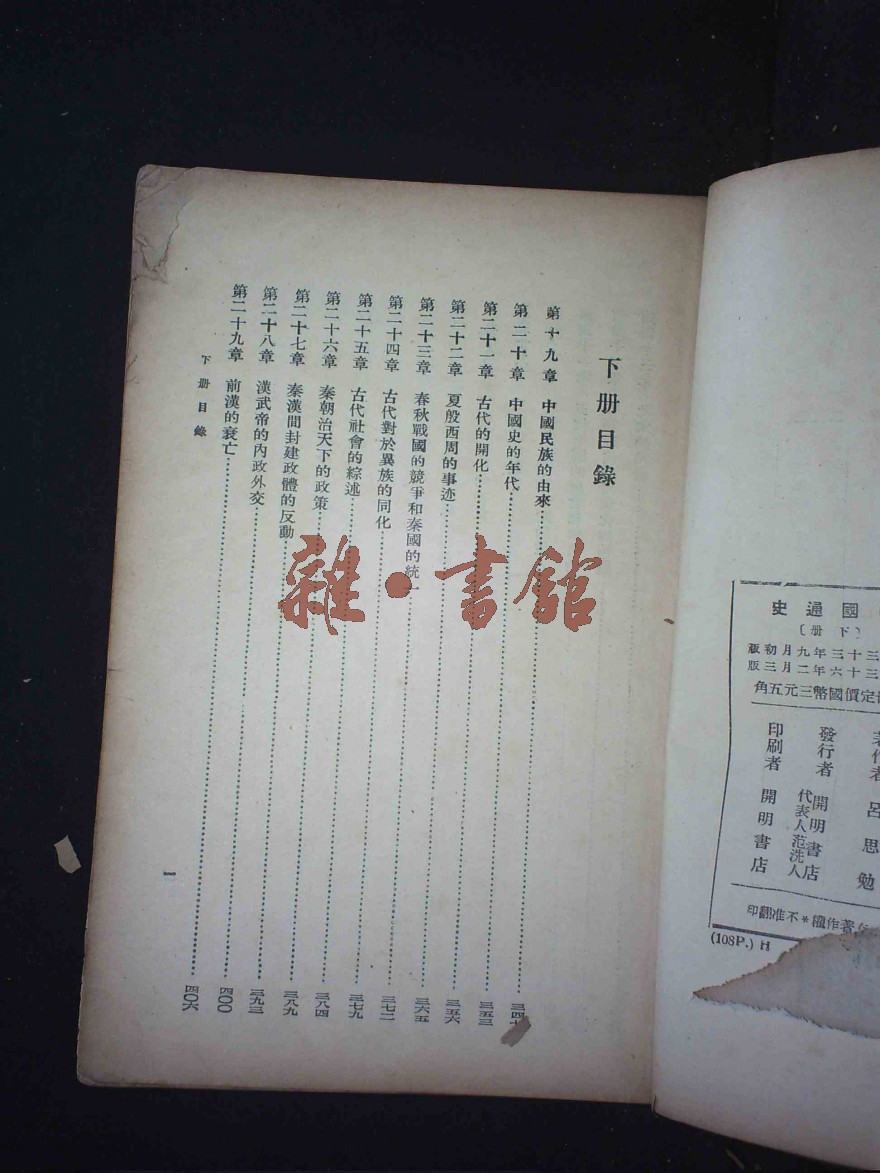 下册目錄
第十九章 中國民族的由來……三四
第二十章 中國史的年代……三五三
第二十一章 古代的開化……三五六
第二十二章 夏殷西周的事迹……三六五
第二十三章 春秋戰國的競爭和秦國的統一……三七二
第二十四章 古代對於異族的同化……三七九
第二十五章 古代社會的綜述……三八四
第二十六章 秦朝治天下的政策……三八九
第二十七章 秦漢間封建政體的反動……三九三
第二十八章 漢武帝的內政外交……四〇〇
第二十九章 前漢的衰亡……四〇六
下册目錄
一
國通史
〔下册〕
三十三年九月初版
三十六年二月三版
定價國幣三元五角
著作者 呂思勉
發行者 開明書店
代表人范洗人
印刷者 開明書店
著作權*不准翻印
(108P.) H
雜·書館